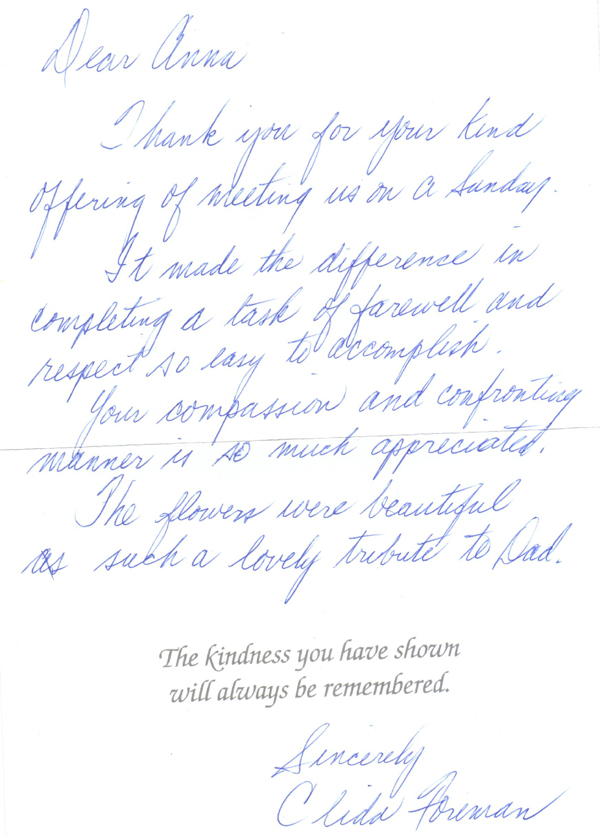 Dear Anna
Thank you for your kind
offering of meeting us on a Sunday.
It made the difference in
completing a task of farewell and
respect so easy to accomplish.
Your compassion and confronting
manner is so much appreciated.
The flowers were beautiful
as such a lovely tribute to Dad.
The kindness you have shown
will always be remembered.
Sincerely
Clida Foreman